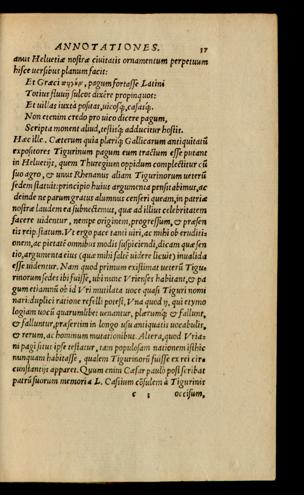 ANNOTATIONES. 37
anus Helvetiæ nostræ civitatis ornamentum perpetuum
hisce versibus planum facit:
Et Græci πηγὴν, pagum fortasse Latini
Totius fluvij sulcos dixêre propinquos:
Et villas iuxtà positas, vicosq́; casasq́;.
Non etenim credo pro vico dicere pagum,
Scripta monent aliud, testisq́; adducitur hostis.
Hæc ille. Cæterum quia pleriq́; Gallicarum antiquitatũ
expositores Tigurinum pagum eum tractum esse putant
in Helvetijs, quem Thuregium oppidum complectitur cũ
suo agro, & unus Rhenanus aliam Tigurinorum veterũ
sedem statuit: principio huius argumenta pensitabimus, ac
deinde ne parum gratus alumnus censeri queam, in patriæ
nostræ laudem ea subnectemus, quæ ad illius celebritatem
facere videntur, nempe originem, progressum, & præsen
tis reip. statum. Vt ergo pace tanti viri, ac mihi ob eruditi
onem, ac pietatẽ omnibus modis suspiciendi, dicam quæ sen
tio, argumenta eius (quæ mihi saltẽ videre licuit) invalida
esse videntur. Nam quod primum existimat veterũ Tigu
rinorum sedes ibi fuisse, ubi nunc Vrienses habitant, & pa
gum etiamnũ ob id Vri mutilata voce quasi Tiguri nomi
nari: duplici ratione refelli potest, Vna quod ij, qui etymo
logiam vocũ quarumlibet venantur, plærumq́; & fallunt,
& falluntur, præsertim in longo usu antiquatis vocabulis,
& rerum, ac hominum mutationibus. Altera, quod Vria=
ni pagi situs ipse testatur, tam populosam nationem isthic
nunquam habitasse, qualem Tigurinorũ fuisse ex rei cir=
cunstantijs apparet. Quum enim Cæsar paulò post scribat
patrũ suorum memoria L. Cassium cõsulem à Tigurinis
c 3 occisum,